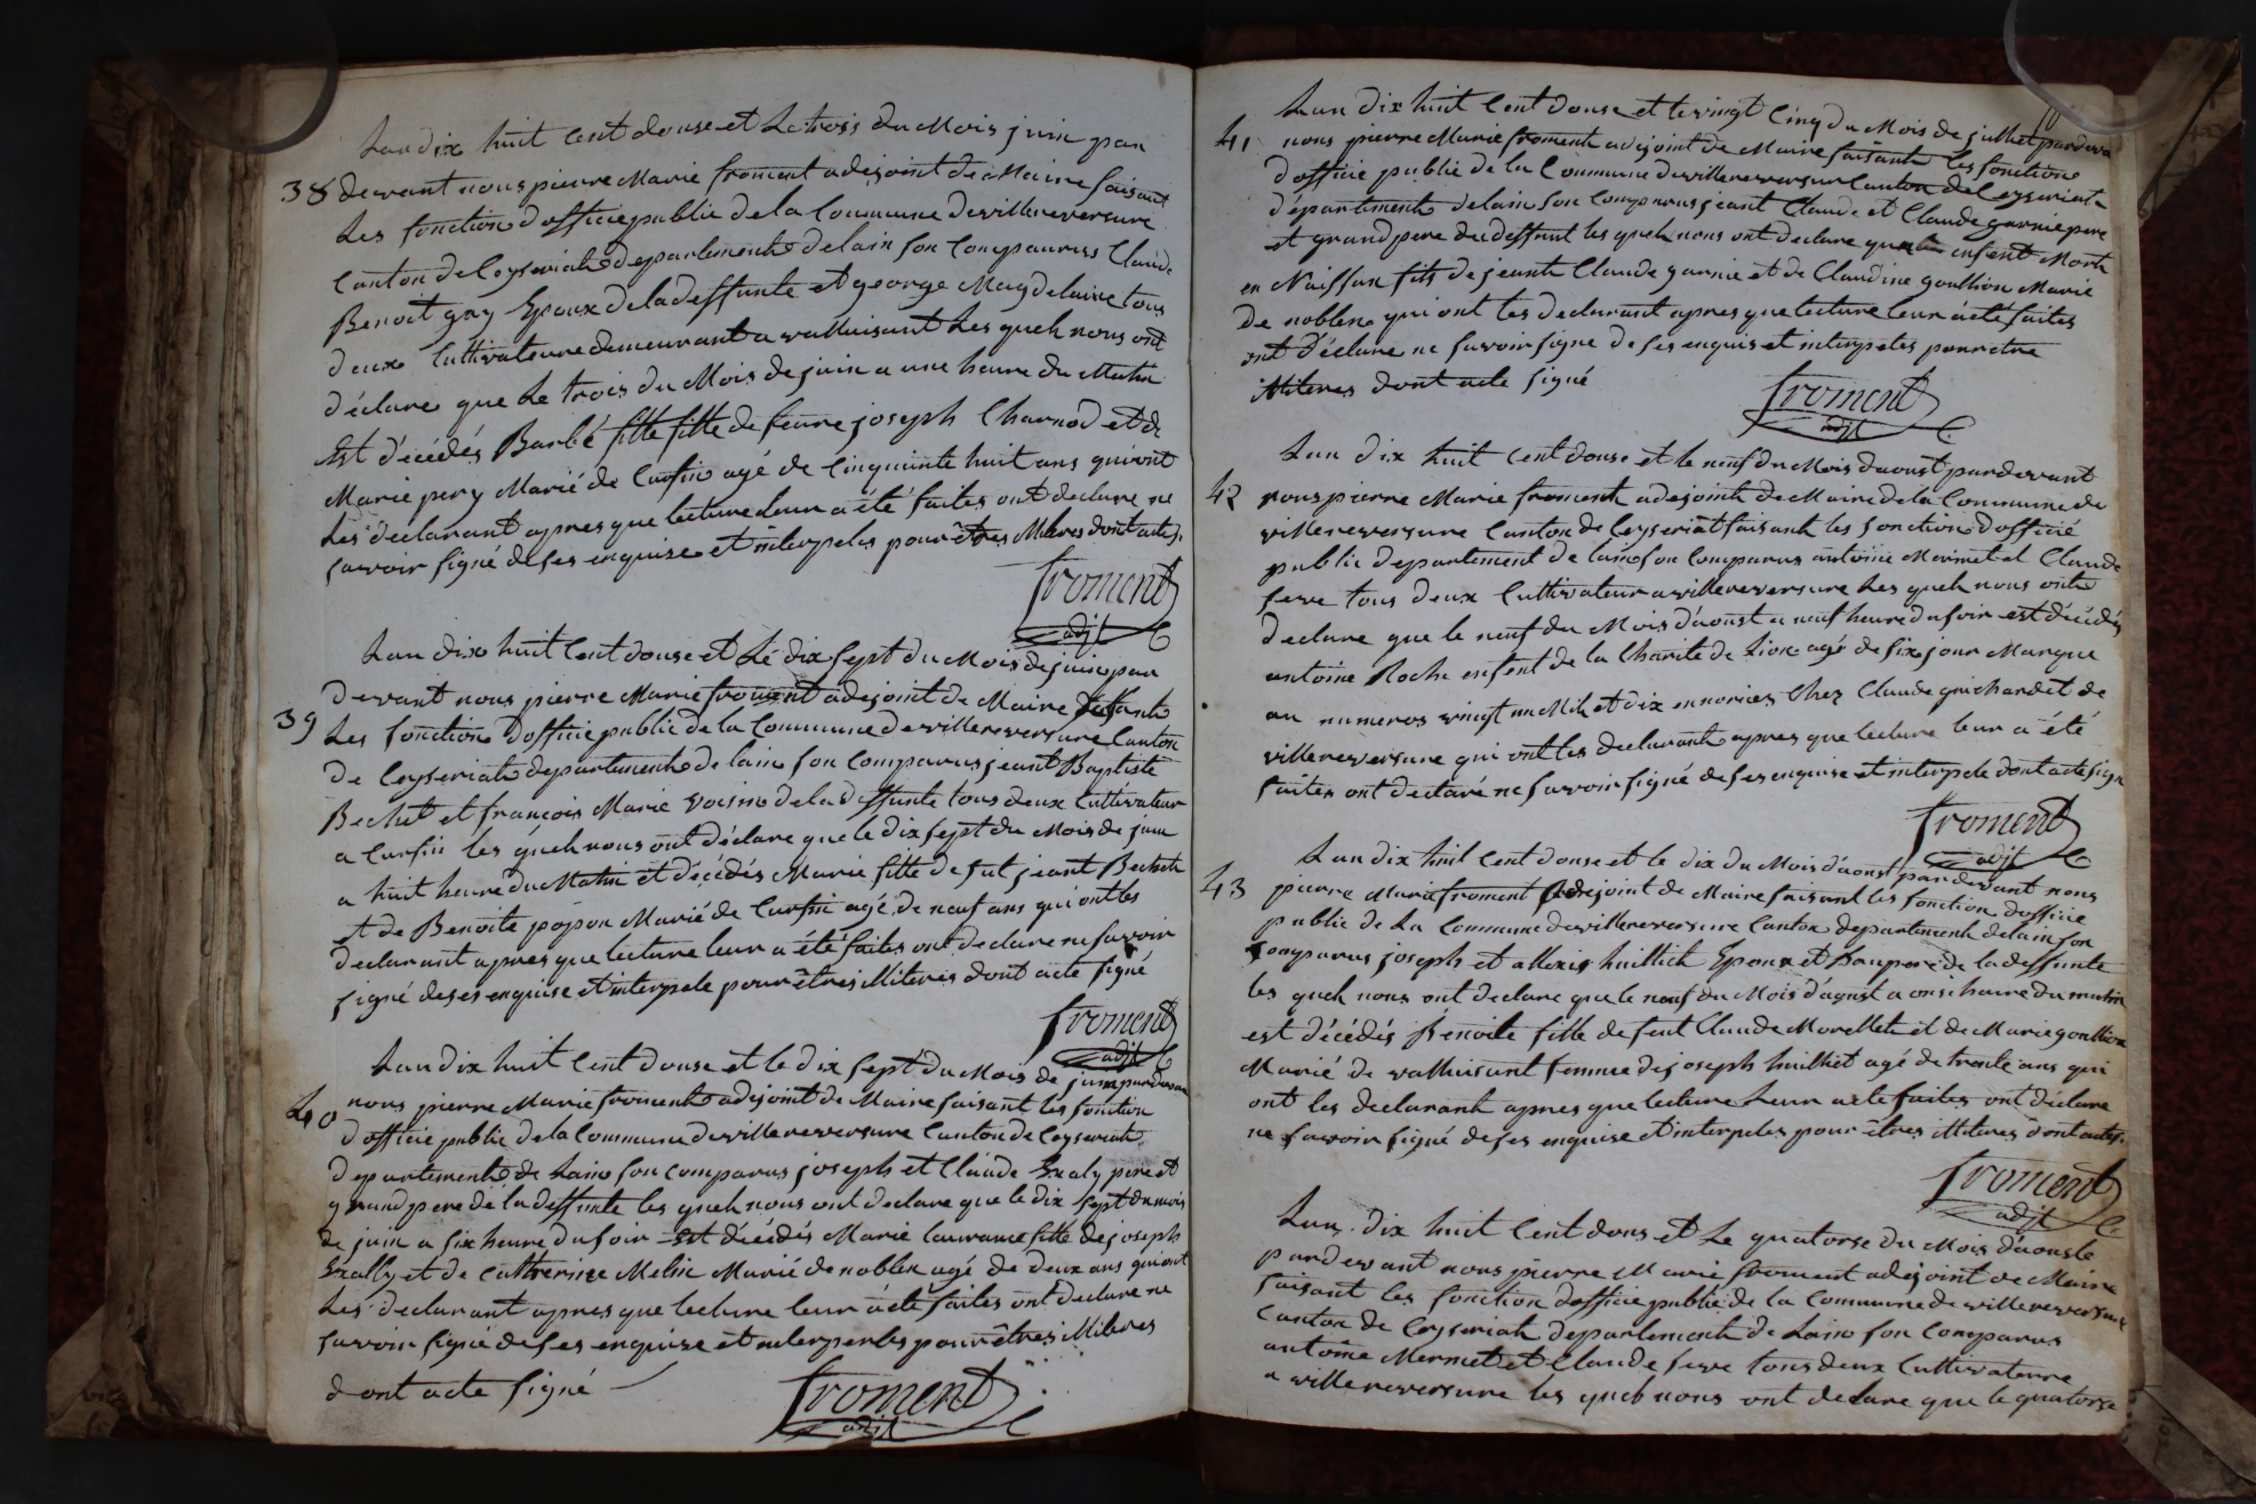 Lan dix huit Cent douse et Le trois du Mois juin par
38 devant nous pierre Marie froment adejoint de Maire faisant
Les fonction d officie public de la Commune de villereversure
Canton de Ceyseriat departement de lain son Comparuss Claude
Benoit gay Epoux de la deffunte et george Magdelaine tous
deux Cultivateure demeurant a valluisant Les queh nous ont
déclare que Le trois du Mois de juin a une heure du Matin
Est décédés Barbé fille fille de feure joseph Charnod et de
Marie pery Marié de Cursin agé de Cinquinte huit ans qui ont
Les declarant apres que lecture leur a été faites ont declare ne
savoir signé de ses enquise et interpeles pour êtres illitres dont acte s.
froment
adjt
Lan dix huit Cent douse et Lé dix sept du Mois de juin par
devant nous pierre Marie froment adejoint de Maire
39 Les fonction d officie public de la Commune de villereversure Canton
de Ceyseriat departement de lain son Comparus jeant Baptiste
Bechet et francois Marie voisin de la deffunte tous deux Cultivateur
a Cursin les quéh nous ont déclare que le dix sept du Mois de juin
a huit heure du Matin et décédés Marie fille de fut jeant Bechet
et de Benoite popon Marié de Cursin agé de neuf ans qui ont les
declarant apres que lecture leur a été faites ont declare ne savoir
signé de ses enquise et interpele pour êtres illitères dont acte signé
froment
adjt
Lan dix huit Cent douse et le dix sept du Mois de juin pardevan
40 nous pierre Marie froment adejoint de Maire faisant les fonction
d officie public de la Commune de villereversure Canton de Ceyseriat
departement de Lain son comparus joseph et Claude Exaly pere et
grand pere de la deffunte les queh nous ont declare que le dix sept du mois
de juin a six heure du soir Est décédés Marie laurance fille de joseph
Exally et de Catherine Melin Marié de noblen agé de deux ans qui ont
Les declarant apres que lecture leur a été faites ont declare ne
savoir signé de ses enquise et interpeles pour êtres illitres
dont acte signé
froment
adjt
Lan dix huit Cent douse et le vingt Cinq du Mois de juillet pardeva
41 nous pierre Marie froment adejoint de Maire faisante les fonction
d officie public de la Commune de villereversur Canton de Ceyseriat
département de lain son Comparus jeant Claude et Claude garnie pere
et grand pere du deffunt les queh nous ont declare que enfent Mort
en Naissan fils de jeant Claude garnie et de Claudine goullion Marié
de noblen qui ont les declarant apres que lecture leur a été faites
ont déclare ne savoir signe de ses enquis et interpeles pour etre
illiteres dont acte signé
froment
adjt
Lan dix huit Cent douse et le neuf du Mois daoust pardevant
42 nous pierre Marie froment adejoint de Maire de la Commune de
villereversure Canton de Ceyseriat faisant les fonction d officié
public departement de lain son Comparus antoine Mermet et Claude
serve tous deux Cultivateur a villereversure Les queh nous ont
declare que le neuf du Mois d'aoust a neuf heure du soir est décédés
antoine Roche enfent de la Charité de Lion agé de six jour Marque
au numeros vingt un Mih et dix en norices Chez Claude guichardet de
villereversure qui ont les declarant apres que lecture leur a été
faites ont declaré ne savoir signé de ses enquise et interpele dont acte signe
froment
adjt
Lan dix huit Cent douse et le dix du Mois d'aoust pardevant nous
43 pierre Marie froment adejoint de Maire faisant les fonction d officie
public de La Commune de villereversure Canton departement de lain son
Comparus joseph et allexis huilliet Epoux et Baupere de la deffunte
les queh nous ont declare que le neuf du Mois d'aoust a onse heure du matin
est décédés Benoite fille de feut Claude Morellet et de Marie goullion
Marié de valluisant femme de joseph huilliet agé de trente ans qui
ont les declarant apres que lecture Leur a été faites ont déclare
ne savoir signé de ses enquise et interpeles pour êtres illitères dont acte s.
froment
adjt
Lan dix huit Cent dous et Le quatorse du Mois d'aouste
pardevant nous pierre Marie froment adejoint de Maire
faisant les fonction d officie public de la Commune de villereversure
Canton de Ceyseriat departement de Lain son Comparus
antoine Mermet et Claude serve tous deux Cultivateure
a villereversure les queh nous ont declare que le quatorse